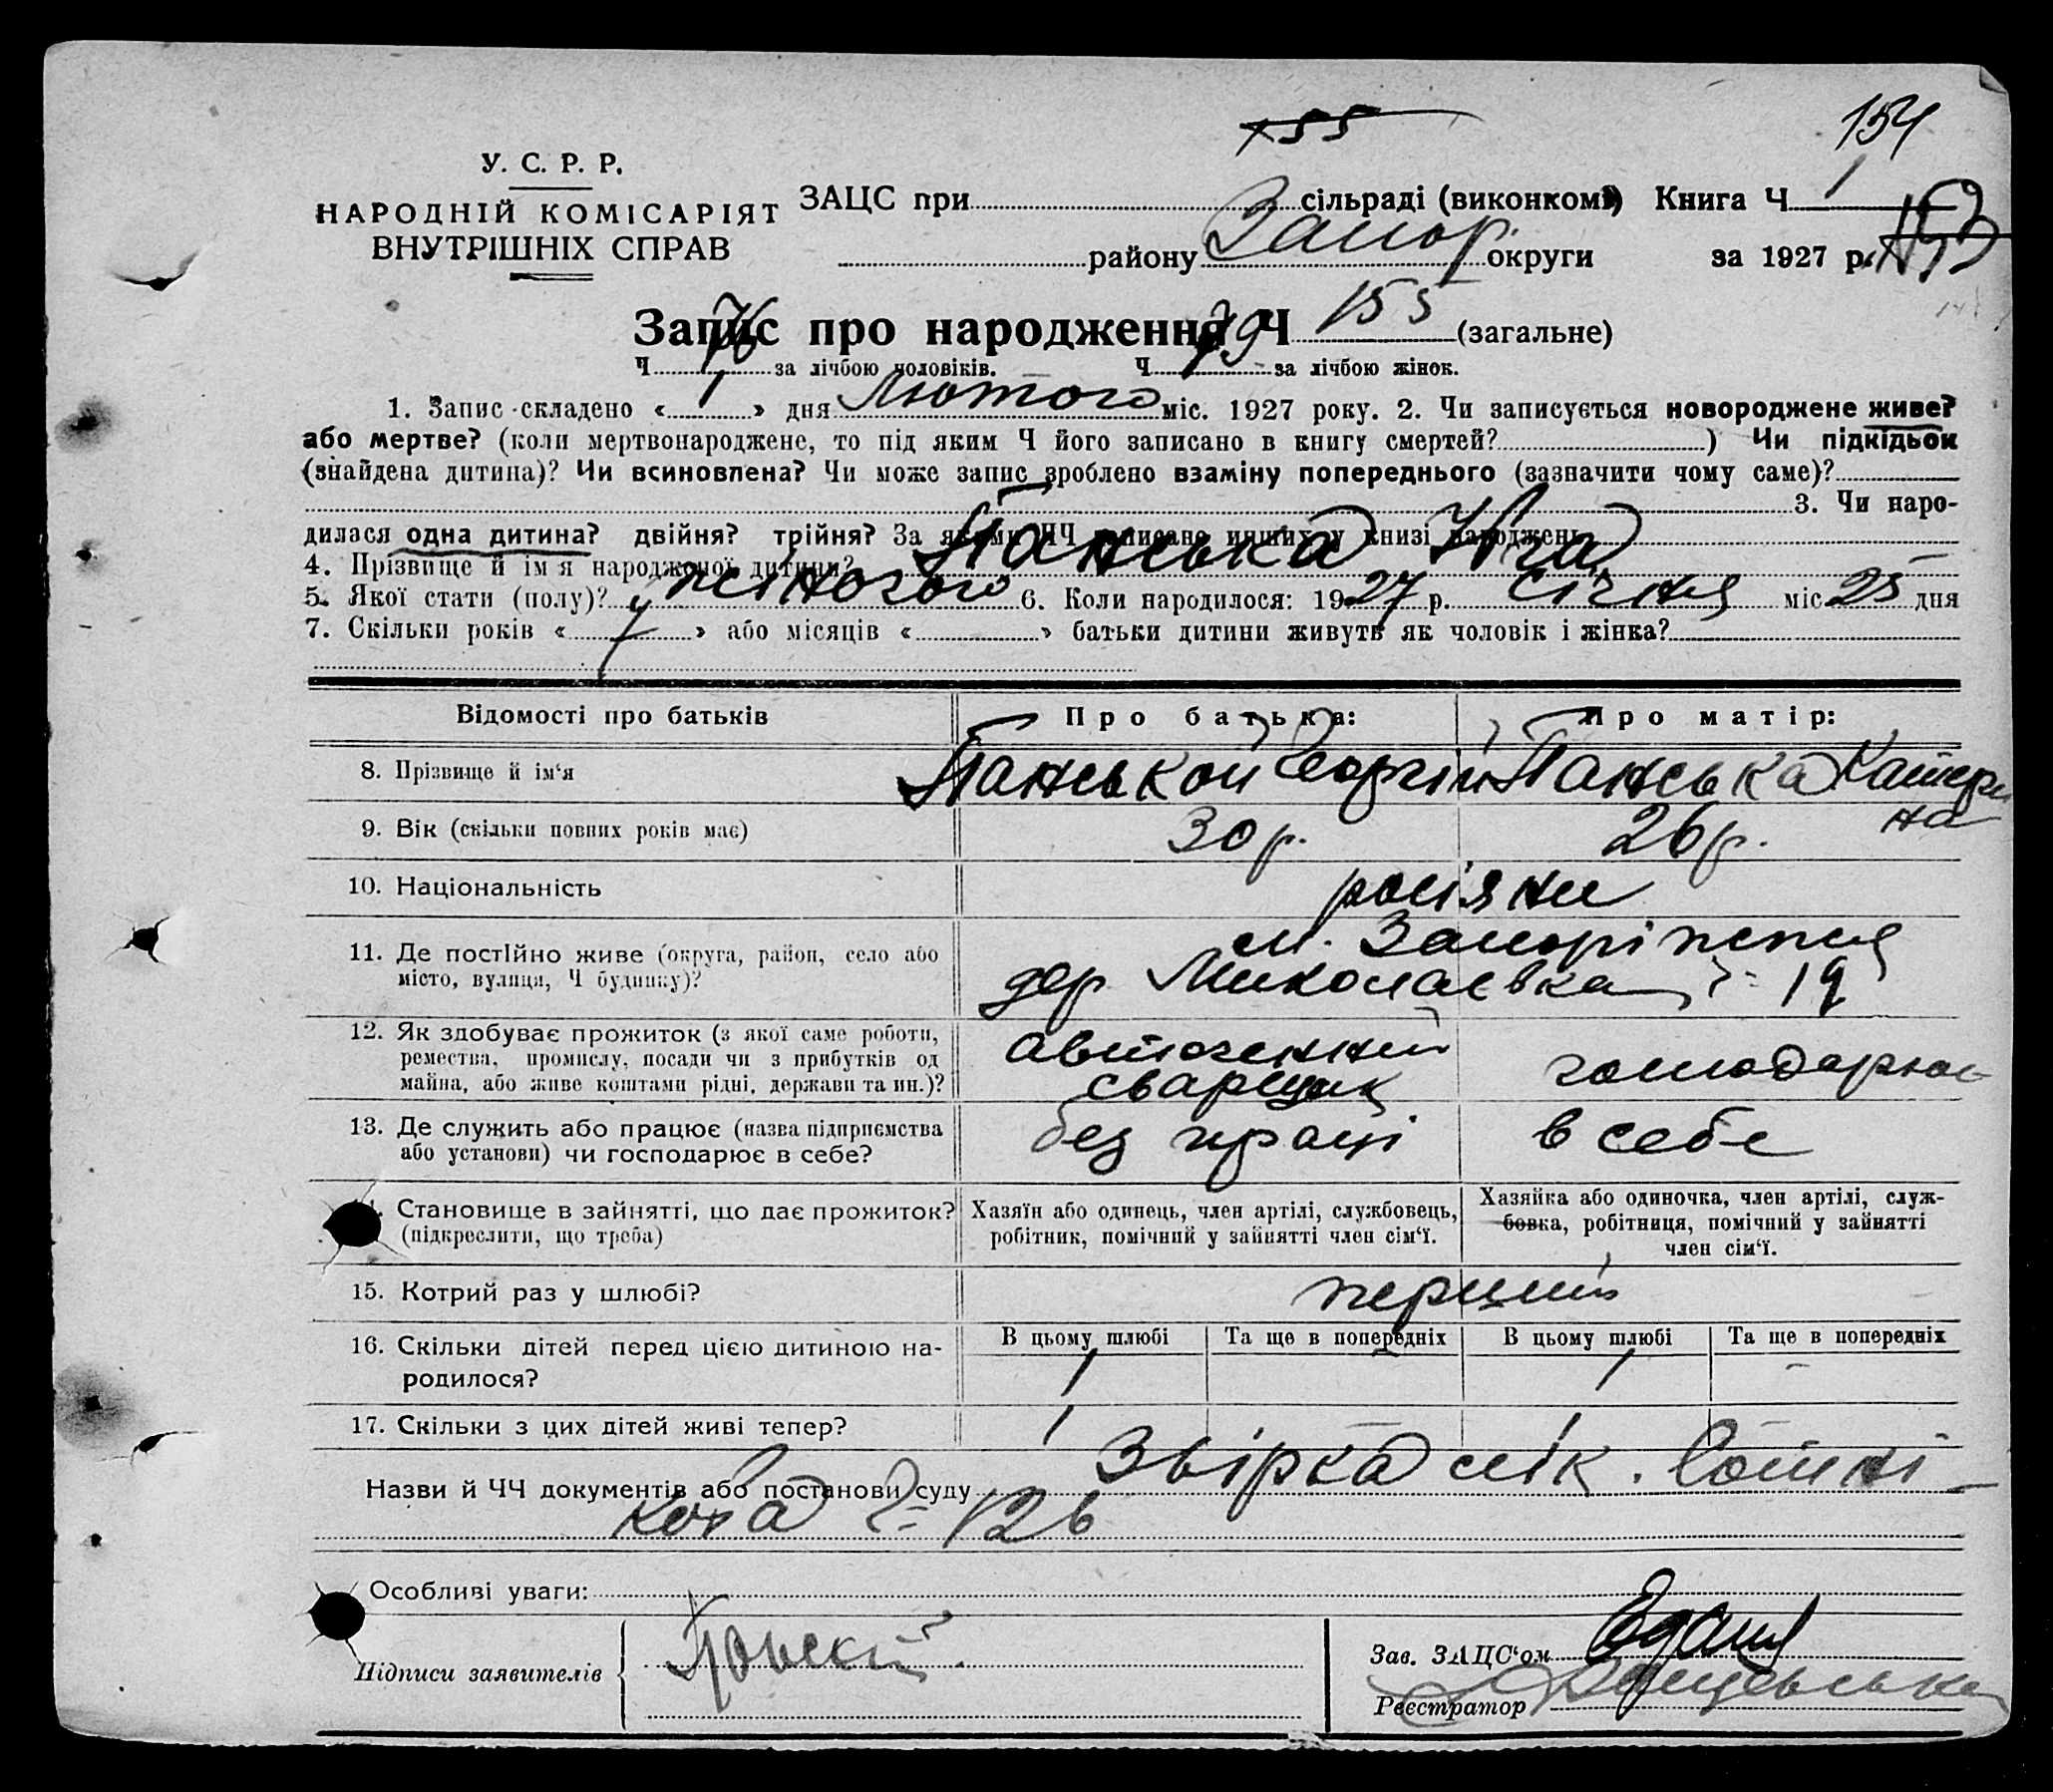 155
154
У. С. Р. Р.
НАРОДНІЙ КОМІСАРІЯТ
ВНУТРІШНІХ СПРАВ
ЗАЦС при сільраді (виконкомі) Книга Ч 1
району Запор. округи за 1927 р. 153
Запис про народження Ч 155 (загальне)
Ч 76 за лічбою чоловіків. Ч 79 за лічбою жінок.
1. Запис складено « 1 » дня Лютого міс. 1927 року. 2. Чи записується новороджене живе?
або мертве? (коли мертвонароджене, то під яким Ч його записано в книгу смертей? ) Чи підкідьок
(знайдена дитина)? Чи всиновлена? Чи може запис зроблено взаміну попереднього (зазначити чому саме)?
3. Чи наро-
дилася одна дитина? двійня? трійня? За якими ЧЧ записано инших у книзі народжень
4. Прізвище й ім'я народженої дитини? Панська
5. Якої стати (полу)? жіночого 6. Коли народилося: 1927 р. січня міс 25 дня
7. Скільки років « » або місяців « » батьки дитини живуть як чоловік і жінка?
Відомості про батьків Про батька: Про матір:
8. Прізвище й ім'я Панський Георгій Панська Катери
на
9. Вік (скільки повних років має) 30 р. 26 р.
10. Національність росіяни
11. Де постІйно живе (округа, район, село або
місто, вулиця, Ч будинку)?
м. Запоріжжя
дер Миколаєвка, 19
12. Як здобуває прожиток (з якої саме роботи,
ремества, промислу, посади чи з прибутків од
майна, або живе коштами рідні, держави та ин.)?
автогенний
сварщик
господарює
13. Де служить або працює (назва підприємства
або установи) чи господарює в себе?
без праці
в себе
Становище в зайнятті, що дає прожиток?
(підкреслити, що треба)
Хазяїн або одинець, член артілі, службовець,
робітник, помічний у зайнятті член сім'ї.
Хазяйка або одиночка, член артілі, служ-
бовка, робітниця, помічний у зайнятті
член сім'ї.
15. Котрий раз у шлюбі? перший
16. Скільки дітей перед цією дитиною на-
родилося?
В цьому шлюбі Та ще в попередніх В цьому шлюбі Та ще в попередніх
1 - 1 -
17. Скільки з цих дітей живі тепер? 1 1
Назви й ЧЧ документів або постанови суду Звірка лік.
126
Особливі уваги:
Підписи заявителів
Зав. ЗАЦС'ом
Реєстратор